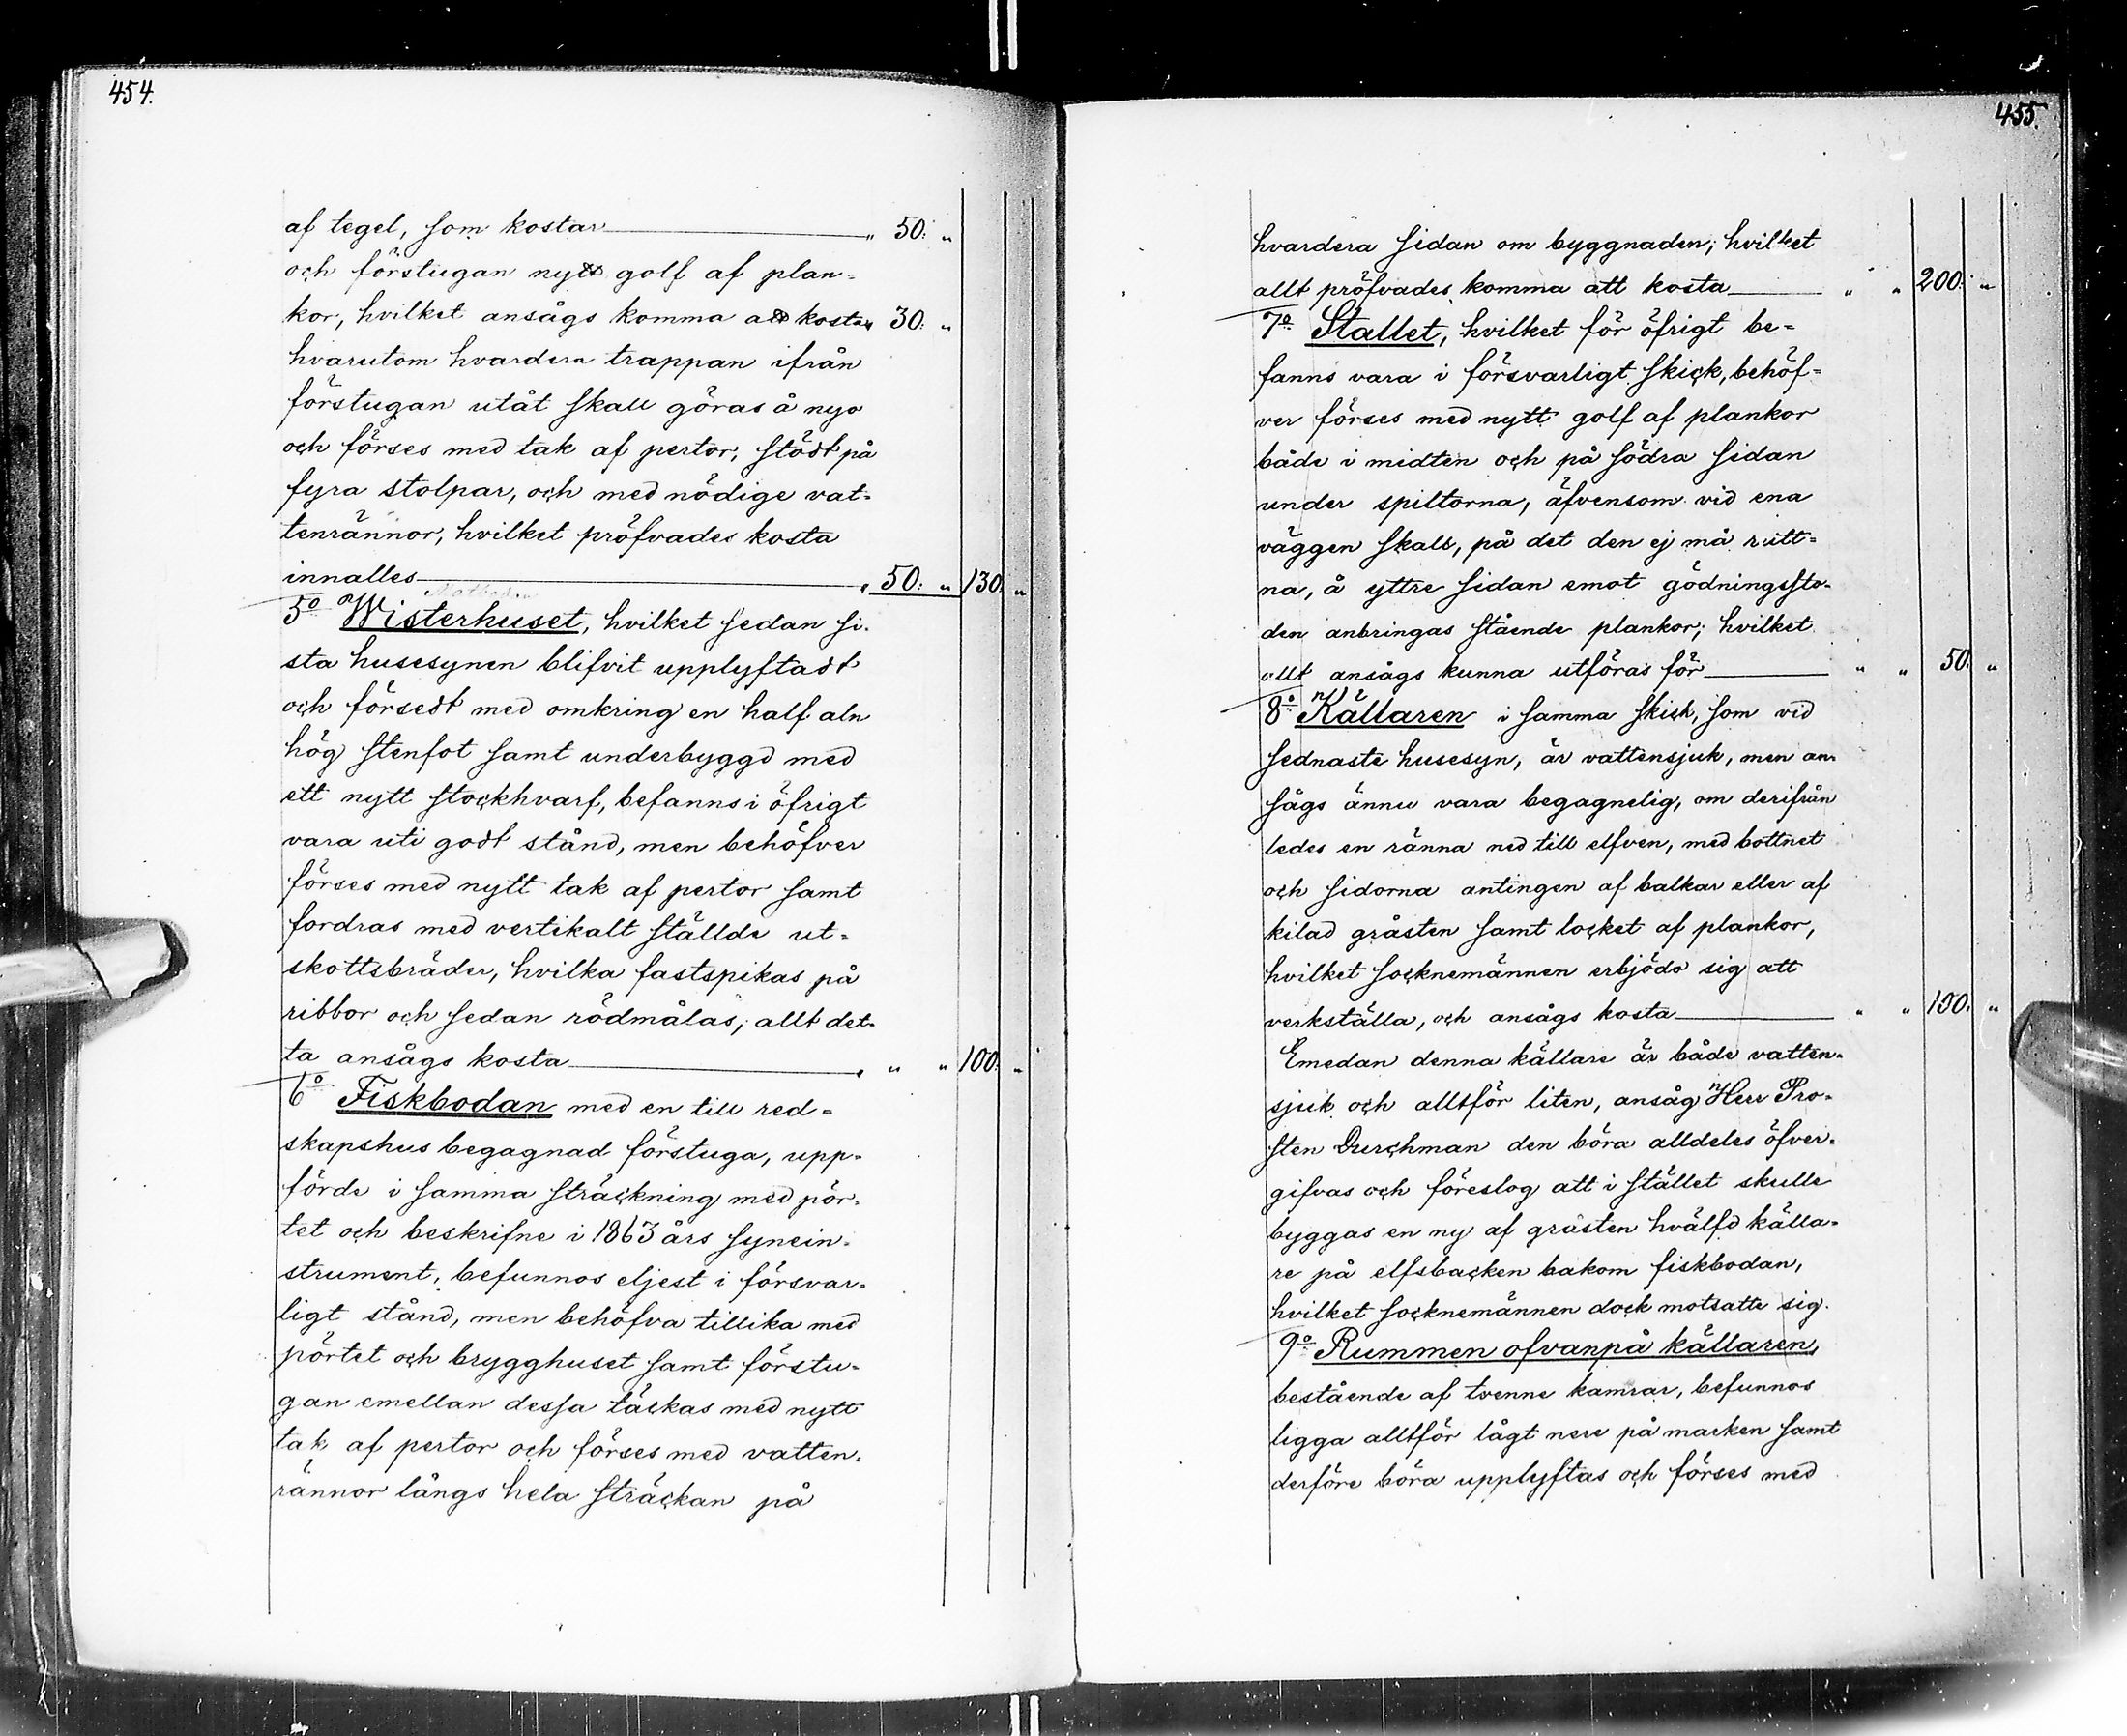 454.
af tegel, som kostar „ 50: „
och förstugan nytt golf af plan-
kor, hvilket ansågs komma att kosta „ 30: „
hvarutom hvardera trappan ifrån
förstugan utåt skall göras å nyo
och förses med tak af pertor, stödt på
fyra stolpar, och med nödige vat-
tenrännor, hvilket pröfvades kosta
innalles „ 50: „ 130: „
Matboden
5o Wisterhuset, hvilket sedan si-
sta husesynen blifvit upplyftadt
och försedt med omkring en half aln
hög stenfot samt underbyggd med
ett nytt stockhvarf, befanns i öfrigt
vara uti godt stånd, men behöfver
förses med nytt tak af pertor samt
fordras med vertikalt ställde ut-
skottsbräder, hvilka fastspikas på
ribbor och sedan rödmålas; allt det-
ta ansågs kosta „ „ „ 100: „
6o Fiskbodan med en till red-
skapshus begagnad förstuga, upp-
förde i samma sträckning med pör-
tet och beskrifne i 1863 års synein-
strument, befunnos eljest i försvar-
ligt stånd, men behöfva tillika med
pörtet och brygghuset samt förstu-
gan emellan dessa täckas med nytt
tak af pertor och förses med vatten-
rännor långs hela sträckan på
455.
hvardera sidan om byggnaden; hvilket
allt pröfvades komma att kosta „ „ 200: „
7o Stallet, hvilket för öfrigt be-
fanns vara i försvarligt skick, behöf-
ver förses med nytt golf af plankor
både i midten och på södra sidan
under spiltorna, äfvensom vid ena
väggen skall, på det den ej må rutt-
na, å yttre sidan emot gödningssto-
den anbringas stående plankor; hvilket
allt ansågs kunna utföras för „ „ 50: „
8o Källaren i samma skick, som vid
sednaste husesyn, är vattensjuk, men an-
sågs ännu vara begagnelig, om derifrån
ledes en ränna ned till elfven, med bottnet
och sidorna antingen af balkar eller af
kilad gråsten samt locket af plankor,
hvilket socknemännen erbjödo sig att
verkställa, och ansågs kosta „ „ 100: „
Emedan denna källare är både vatten-
sjuk och alltför liten, ansåg Herr Pro-
sten Durchman den böra alldeles öfver-
gifvas och föreslog att i stället skulle
byggas en ny af gråsten hvälfd källa-
re på elfsbacken bakom fiskbodan,
hvilket socknemännen dock motsatte sig.
9o Rummen ofvanpå källaren,
bestående af tvenne kamrar, befunnos
ligga alltför lågt nere på marken samt
derföre böra upplyftas och förses med